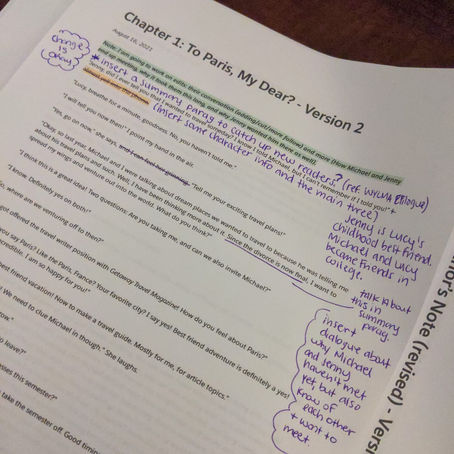 Chapter 1: To Paris, My Dear? - Version 2
August 16, 2021
change is okay
Note: I am going to work on edits: their conversation (adding/cut/more follow) and more (How Michael and Jenny
end up meeting, why it took them this long, and why Jenny wanted him there as well.
* insert a summary parag to catch up new readers? (ref WYLWA Epilogue)
(insert some character info and the main three)
"Jenny, did I ever tell you that I wanted to travel someday? I know I told Michael, but I can't remember if I told you!" +
"Lucy, breathe for a minute, goodness. No, you haven't told me."
"I will tell you now then!" I point my hand in the air.
"Yes, go on now," she says, and I can feel her grinning. "Tell me your exciting travel plans!"
"Okay, so last year, Michael and I were talking about dream places we wanted to travel to because he was telling me
about his travel plans and such. Well, I have been thinking more about it. Since the divorce is now final, I want to
spread my wings and venture out into the world. What do you think?"
"I think this is a great idea! Two questions: Are you taking me, and can we also invite Michael?"
"I know. Definitely yes on both!"
So, where are we venturing off to then?"
got offered the travel writer position with Getaway Travel Magazine! How do you feel about Paris?"
you say Paris? Like the Paris, France? Your favorite city? I say yes! Best friend adventure is definitely a yes!
credible. I am so happy for you!"
best friend vacation! How to make a travel guide. Mostly for me, for article topics."
! We need to clue Michael in though." She laughs.
now."
to leave?"
sses this semester?"
take the semester off. Good timing
Jenny is Lucy's
childhood best friend.
Michael and Lucy
became friends in
college.
talk about
this in
summary
parag.
insert
dialogue about
why Michael
and Jenny
haven't met
yet but also
know of
each other
+ want to
meet.
tor's Note (revised) - Vers